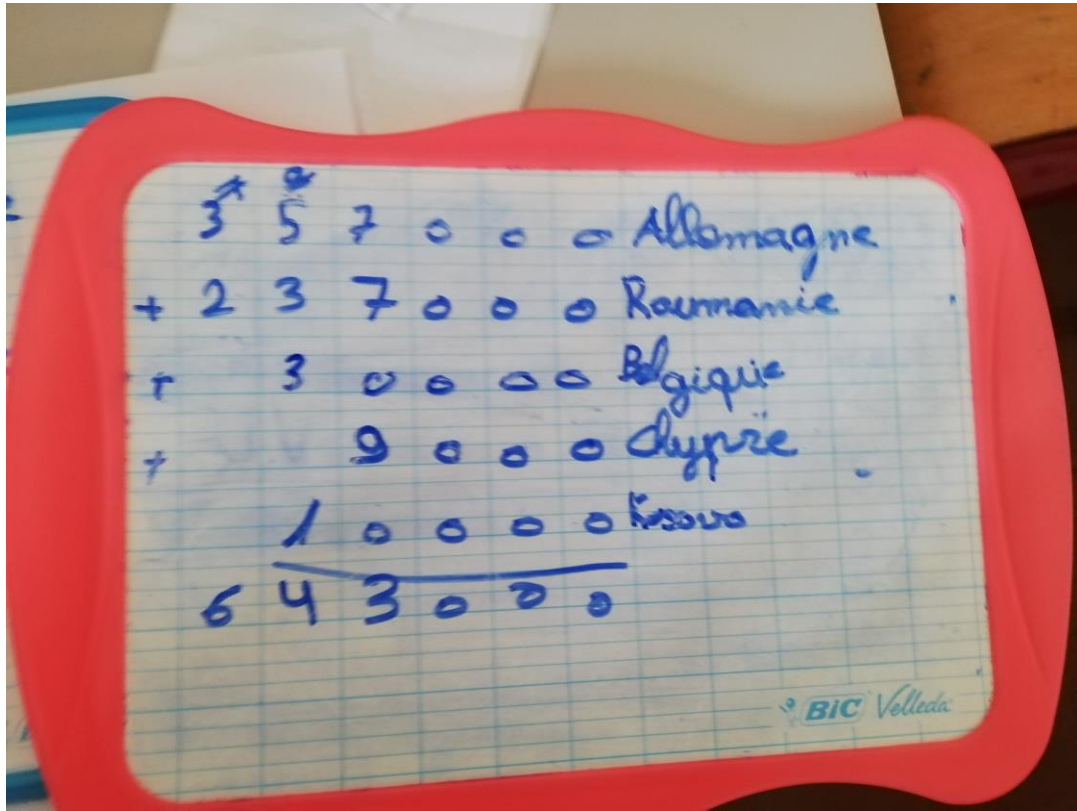 3 5 7 0 0 0 Allemagne
+ 2 3 7 0 0 0 Roumanie
+ 3 0 0 0 0 Belgique
+ 9 0 0 0 Chypre
1 0 0 0 0 Kosovo
6 4 3 0 0 0
BIC Velleda